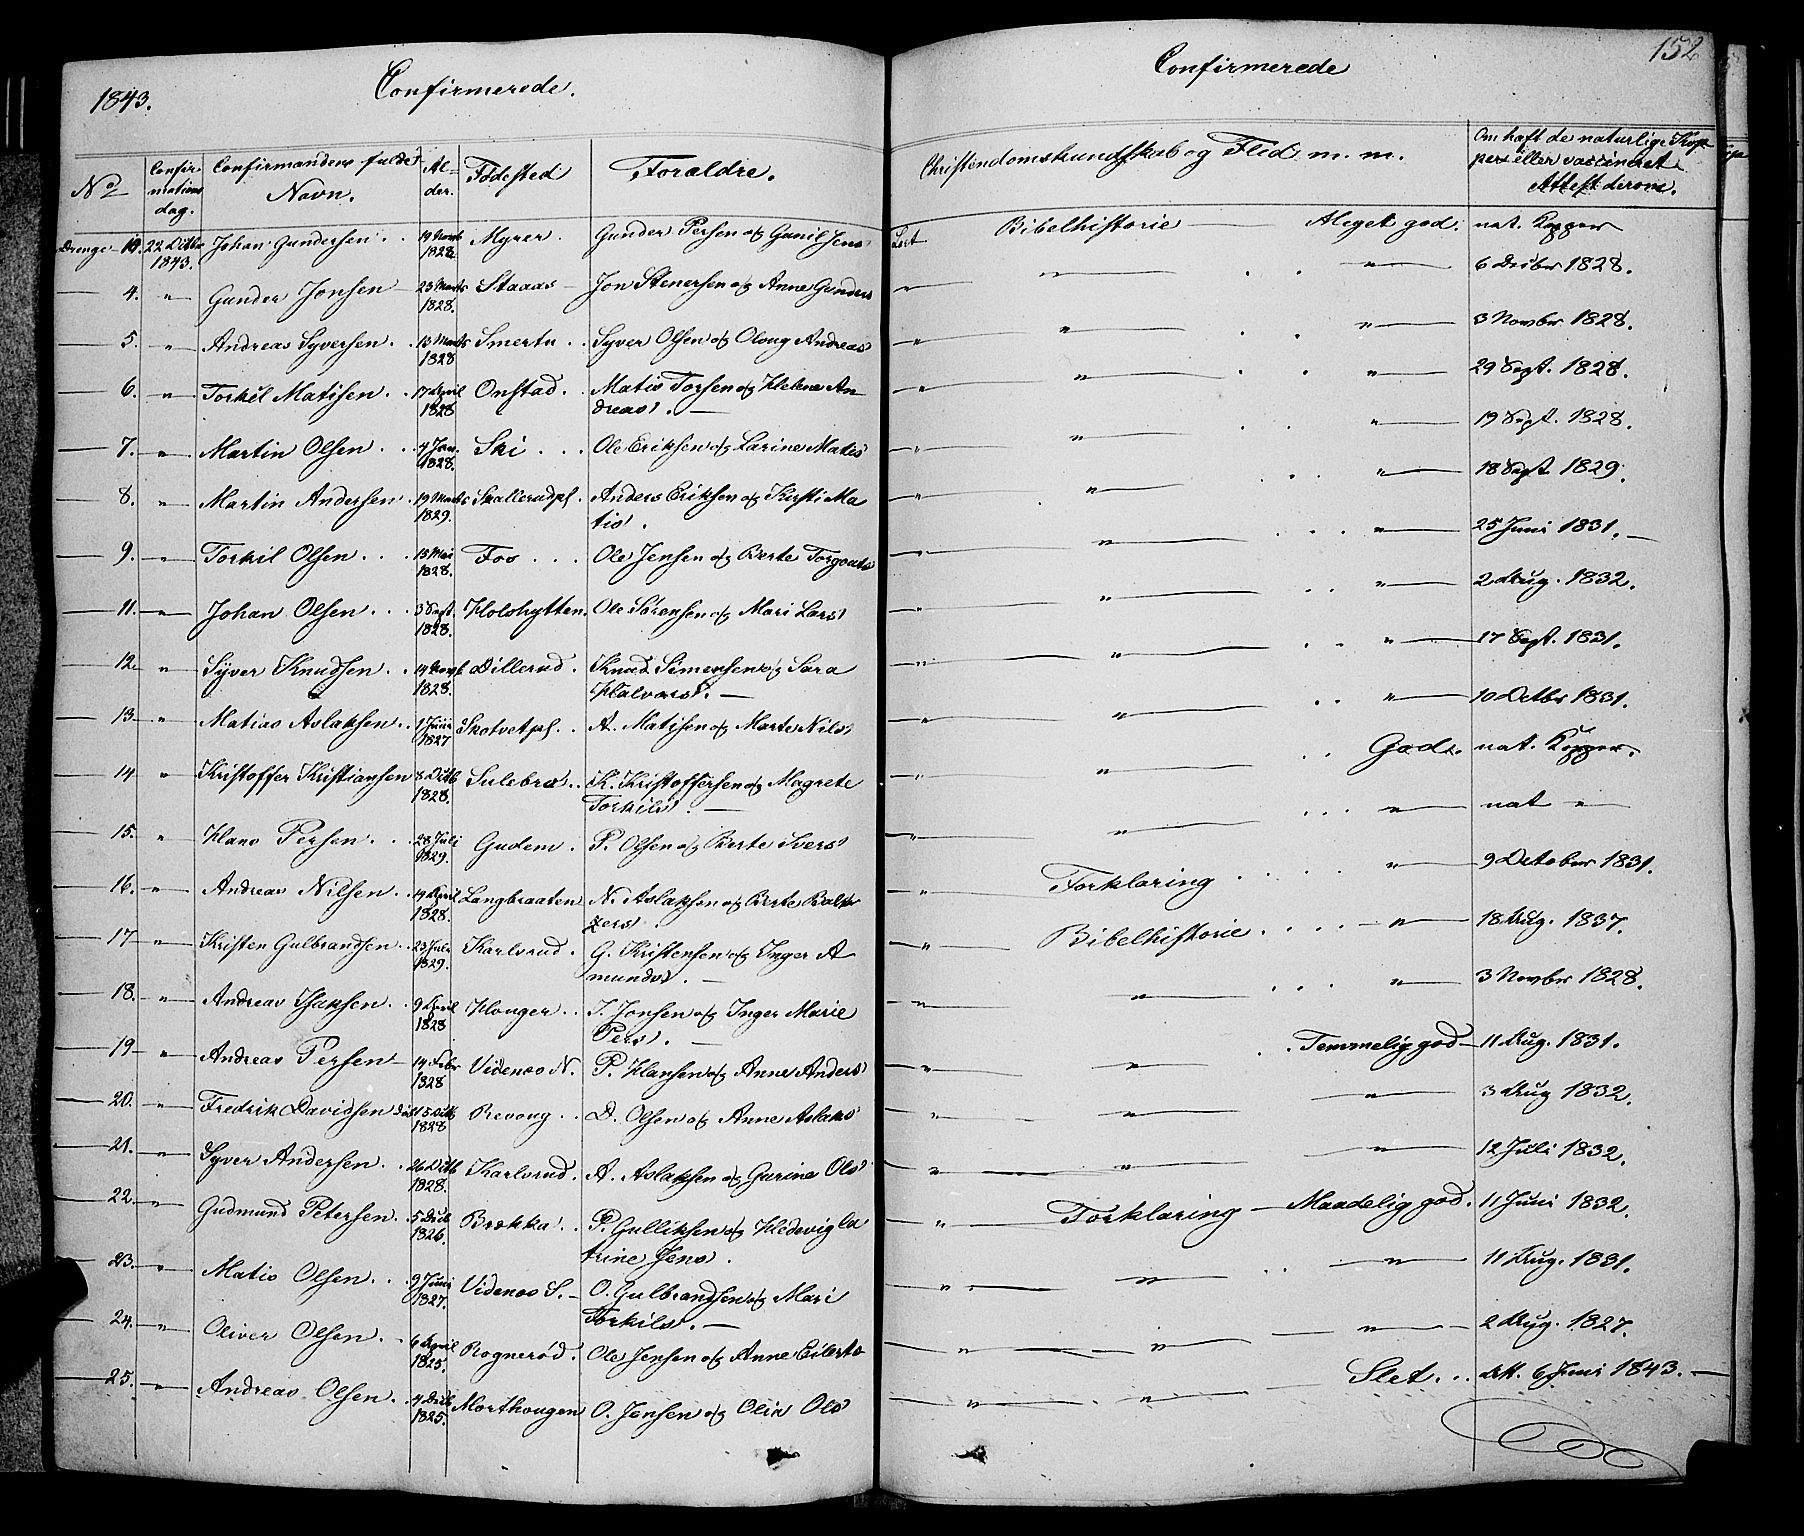 1843. Confirmerede. Confirmerede 152
No Confirmations dag. Confirmandens fulde Navn. Alder. Fødested Forældre. Christendomskundskab og Flid m. m. Om haft de naturlige Kopper eller vaccineret Attest derom.
Drenge 10. 22 Octbr 1843. Johan Gundersen. 19 1828 Myrer. Gunder Persen og Gunil Jens Læst Bibelhistorie Meget god. nat. Kopper
4. " Gunder Jonsen 23 Marts 1828. Staaas Jon Stenersen og Anne Gunders " " " 6 Decbr 1828.
5. " Andreas Syversen. 13 Marts 1828 Smertu Syver Olsen og Oloug Andreas " " " 3 Novbr 1828.
6. " Torkel Matisen. 17 April 1828 Onstad. Matis Torsen og Helene Andreas. " " " 29 Sept. 1828.
7. " Martin Olsen 4 Jan. 1828. Ski Ole Eriksen og Larine Matis " " " 19 Sept. 1828.
8. " Martin Andersen 19 Marts 1829. Skallerudpl. Anders Eriksen og Kirsti Matis. " " " 18 Sept. 1829.
9. " Torkil Olsen 13 Mai 1828. Fos Ole Jensen og Berte Torgouts " " " 25 Juni 1831.
11. " Johan Olsen 3 Sept. 1828. Holshytten Ole Sørensen og Mari Lars " " " 2 Aug. 1832.
12. " Syver Knudsen 14 1828. Dillerud. Knud Simensen og Sara Halvors. " " " 17 Sept. 1831.
13. " Matias Aslaksen 1 Juni 1827 Skotvetpl. A. Matisen og Marte Nils " " " 10 Octbr 1831.
14 " Kristoffer Kristiansen 8 Octb 1828. Sulebra K. Kristoffersen og Magrete Torkils. " " God. nat. Kopper.
15. " Hans Persen. 28 Juli 1829. Gudem. P. Olsen og Berte Ivers " " " nat "
16. " Andreas Nilsen. 19 April 1828. Langbraaten N. Aslaksen og Berte Baltzers. " Forklaring " 9 October 1831.
17 " Kristen Gulbrandsen 23 Juli 1829. Karlsrud. G. Kristensen og Inger Amunds. " Bibelhistorie " 18 Aug. 1837.
18. " Andreas Isaksen. 9 April 1828 Houger I. Jonsen og Inger Marie Pers. " " " 3 Novbr 1828.
19 " Andreas Persen 14 Febr 1828 Videnes N. P. Hansen og Anne Anders " " Temmelig god 11 Aug. 1831.
20. " Fredrik Davidsen 1828 Revoug D. Olsen og Anne Aslaks " " " 3 Aug 1832.
21. " Syver Andersen. 26 Octb 1828. Karlsrud. A. Aslaksen og Gurine Ols " " " 12 Juli 1832.
22. " Gudmund Petersen. 5 1826. Brekka P. Gulliksen og Hedevig Catrine Jens. " Forklaring Maadelig god. 11 Juni 1832.
23. " Matis Olsen. 9 Juni 1827. Videnes S. O. Gulbrandsen og Mari Torkils. " " " 11 Aug. 1831.
24. " Oliver Olsen. 6 April 1825. Rognerød. Ole Jensen og Anne Eilerts " " " 2 Aug. 1827.
25. " Andreas Olsen. 4 1825. Morthougen O. Jensen og Olia Ols " " Slet. att. 6 Juni 1843.